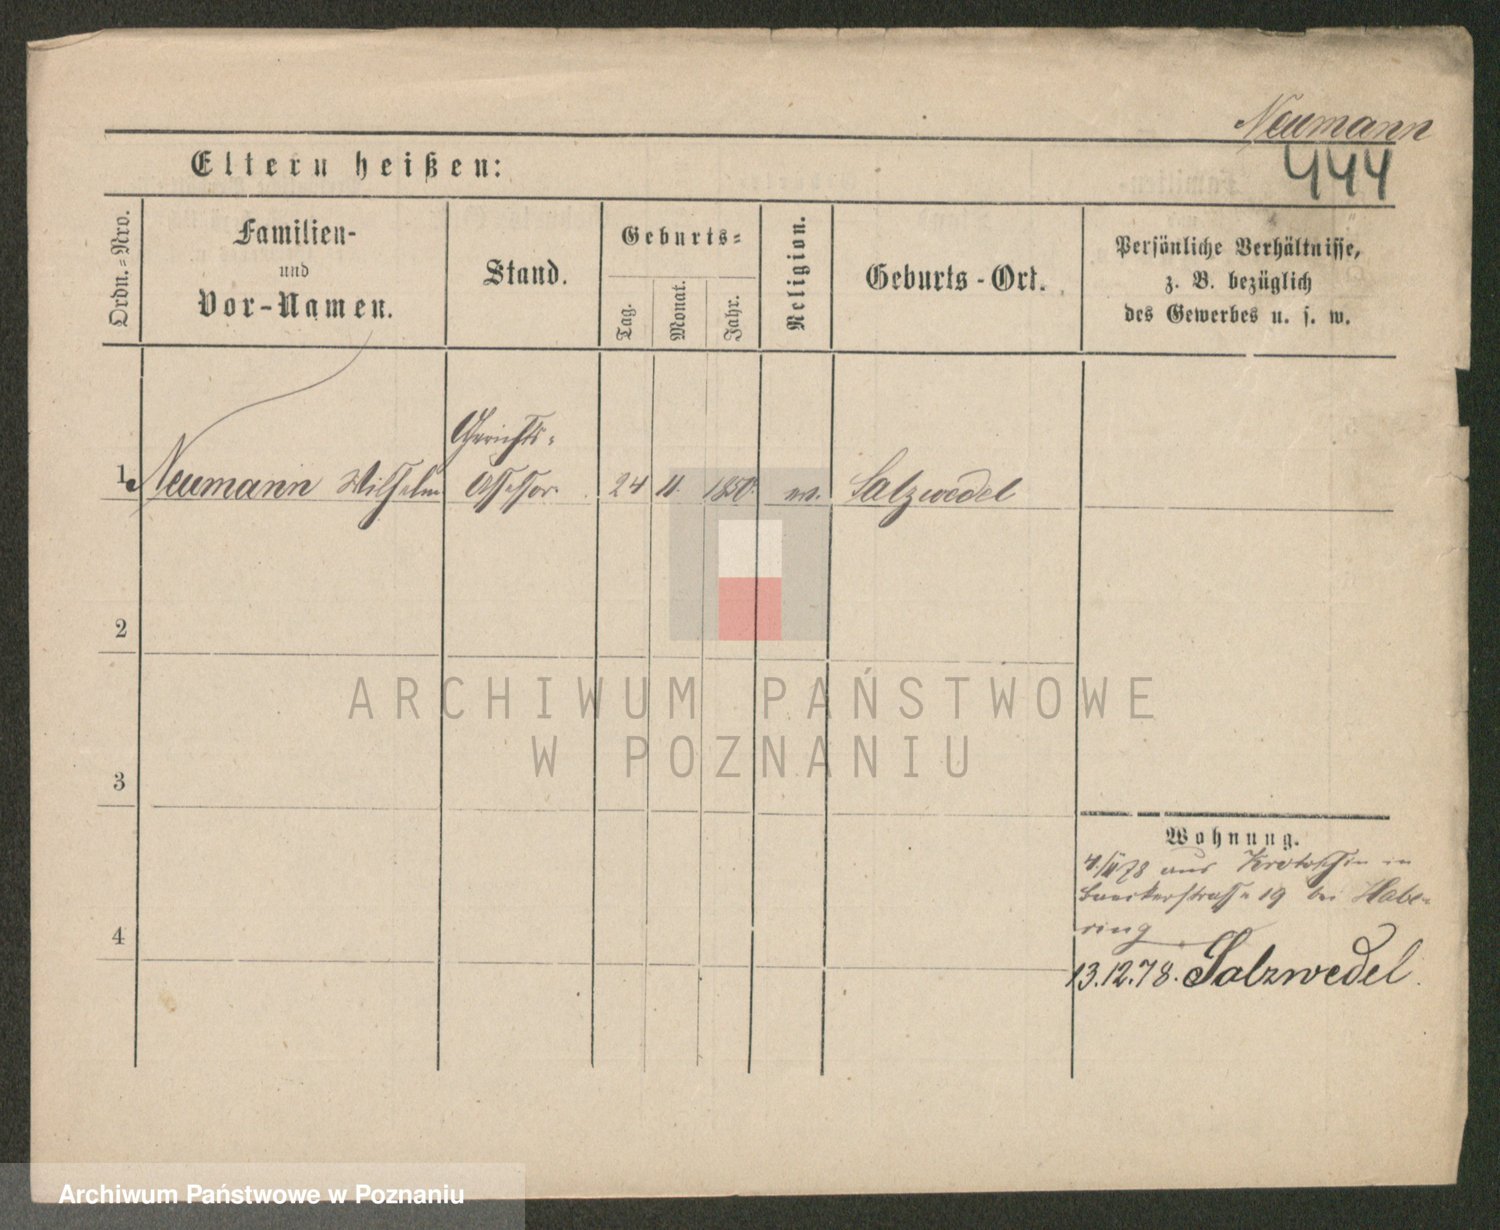 Neumann
444
Eltern heißen:
Ordn.-Nro.
Familien-
und
Vor-Namen.
Stand.
Geburts-
Tag.
Monat.
Jahr.
Religion.
Geburts-Ort.
Persönliche Verhältnisse,
z. B. bezüglich
des Gewerbes u. s. w.
Gerichts-
1 Neumann Wilhelm Assessor 24 11. 1850. ev. Salzwedel
2
3
4
Wohnung.
4/11 78 aus Krotoschin in
Baeckerstrasse 19 bei Habe-
ring
13.12.78. Salzwedel.
ARCHIWUM PAŃSTWOWE
W POZNANIU
Archiwum Państwowe w Poznaniu